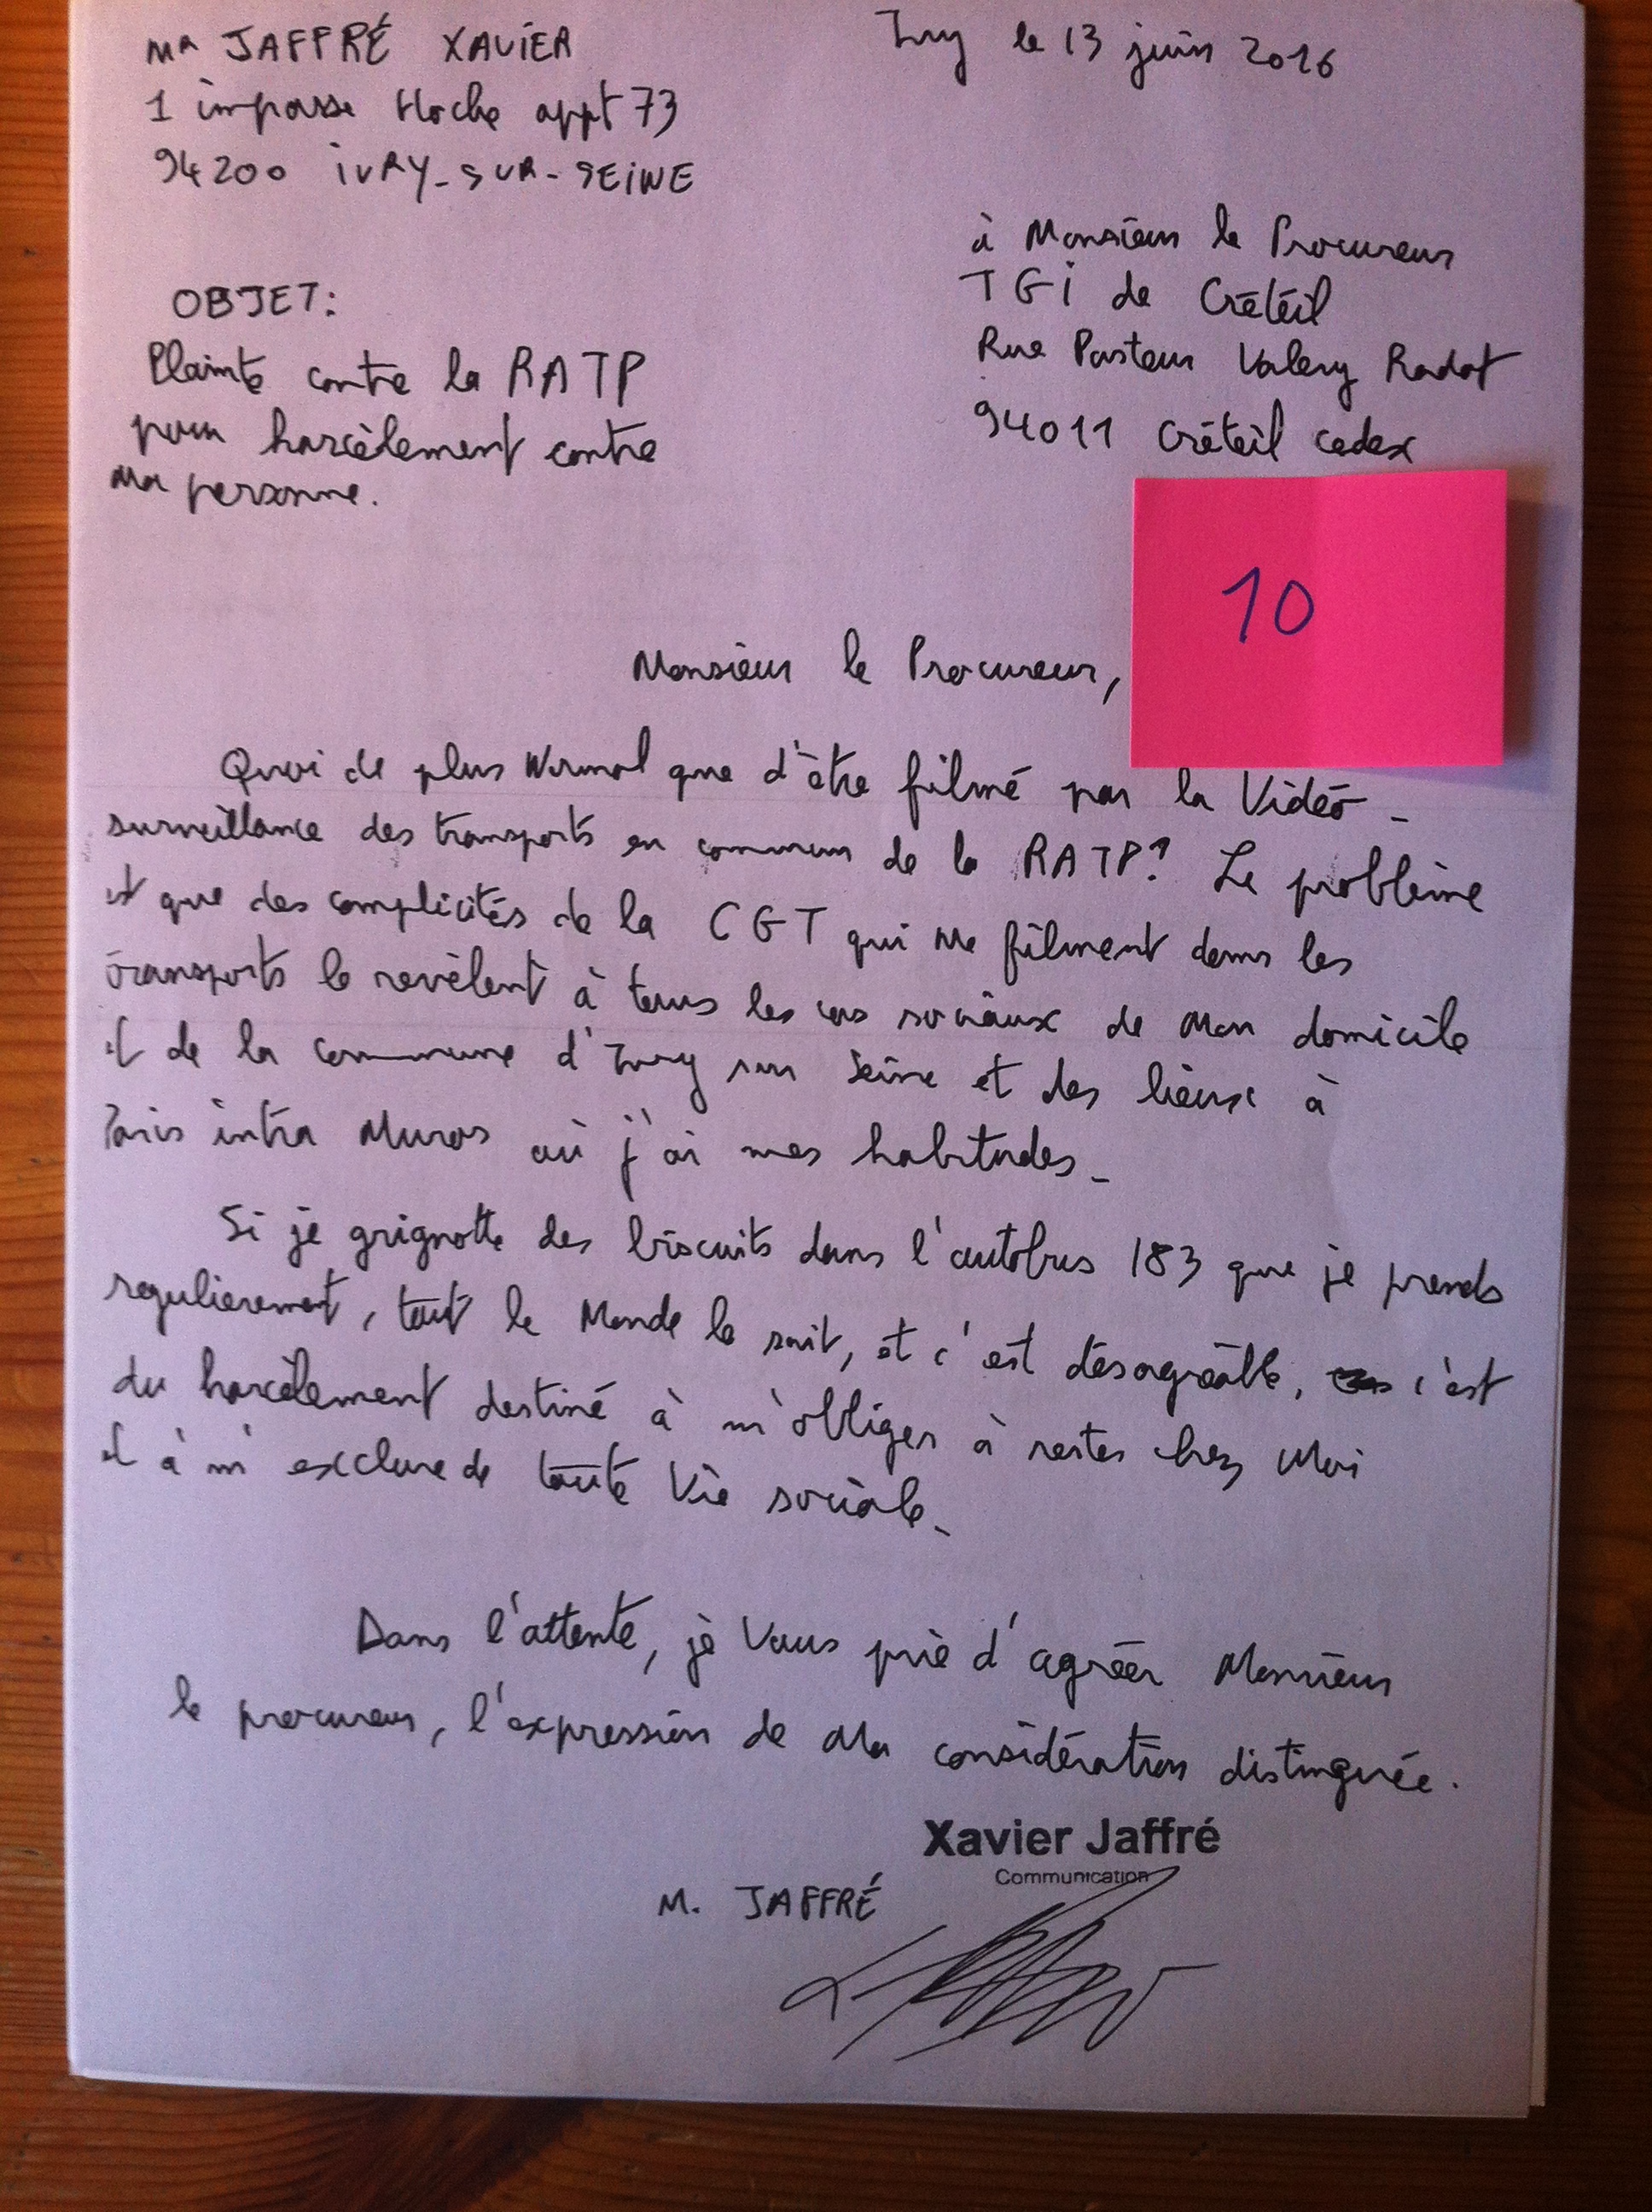 Mr JAFFRÉ XAVIER
1 impasse Hoche appt 73
94200 IVRY-SUR-SEINE
Ivry le 13 juin 2016
à Monsieur le Procureur
TGI de Créteil
Rue Pasteur Valery Radot
94011 Créteil cedex
OBJET:
Plainte contre la RATP
pour harcèlement contre
ma personne.
10
Monsieur le Procureur,
Quoi de plus Normal que d'être filmé par la Vidéo-
surveillance des transports en commun de la RATP? Le problème
est que des complicités de la CGT qui me filment dans les
transports le revèlent à tous les cas sociaux de mon domicile
et de la commune d'Ivry sur Seine et des lieux à
Paris intra Muros où j'ai mes habitudes_
Si je grignotte des biscuits dans l'autobus 183 que je prends
regulierement, tout le Monde le sait, et c'est désagréable, c'est
du harcèlement destiné à m'obliger à rester chez Moi
et à m'exclure de toute Vie sociale_
Dans l'attente, je Vous prie d'agréer Monsieur
le procureur, l'expression de Ma considération distinguée.
Xavier Jaffré
Communication
M. JAFFRÉ